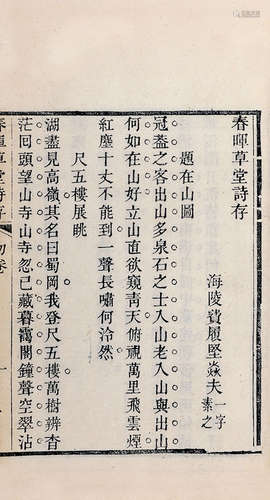 春暉草堂詩存
海陵費履堅焱夫一字素之
題在山圖
冠蓋之客出山多泉石之士入山老入山與出山
何如在山好立山直欲窺青天俯視萬里飛雲煙
紅塵十丈不能到一聲長嘯何泠然
尺五樓展眺
湖盡見高嶺其名曰蜀岡我登尺五樓萬樹辨杳
茫囘頭望山寺山寺忽已藏暮靄閣鐘聲空翠沾
春暉草堂詩存 卷 一